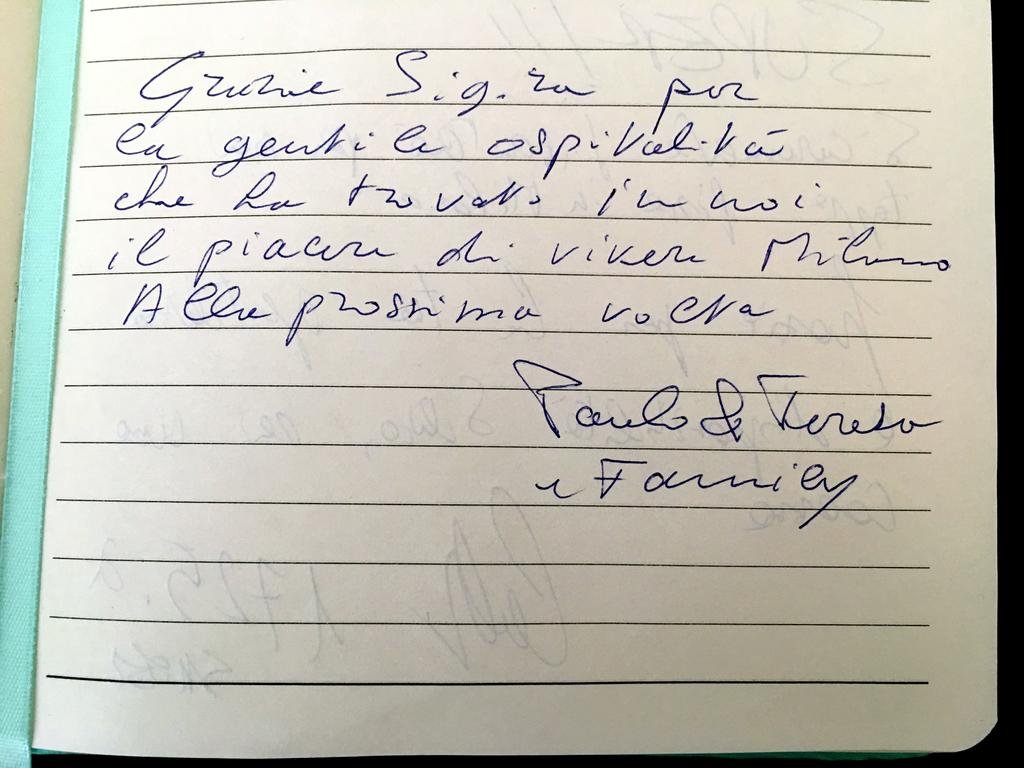 Grazie Sig.ra per
la gentile ospitalità
che ha trovato in noi
il piacere di vivere Milano
Alla prossima volta
Paolo & Teresa
e Family